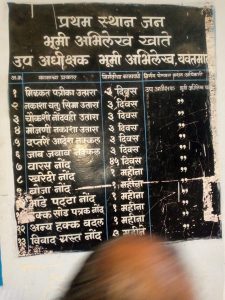 प्रथम स्थान जन
भूमी अभिलेख खाते
उप अधीक्षक भूमी अभिलेख, यवतमाळ
अ.क्र. कामाचा प्रकार
१ मिळकत पत्रीका उतारा ३ दिवस उप अधीक्षक भूमी अभिलेख
२ नकाशा चतु: सिमा उतारा ३ दिवस ,,
३ चौकशी नोंदवही उतारा ३ दिवस ,,
४ मोजणी नकाशा उतारा ३ दिवस ,,
५ दप्तरी आदेश नक्कल ३ दिवस ,,
६ जाब जबाब नक्कल ३ दिवस ,,
७ वारस नोंद ४५ दिवस ,,
८ खरेदी नोंद १ महीना ,,
९ बोजा नोंद १ महीना ,,
१० भाडे पट्टा नोंद १ महीना ,,
११ हक्क सोड पत्रक नोंद १ महीना ,,
१२ अन्य हक्क बदल १ महीना ,,
१३ विवाद ग्रस्त नोंद महीना ,,